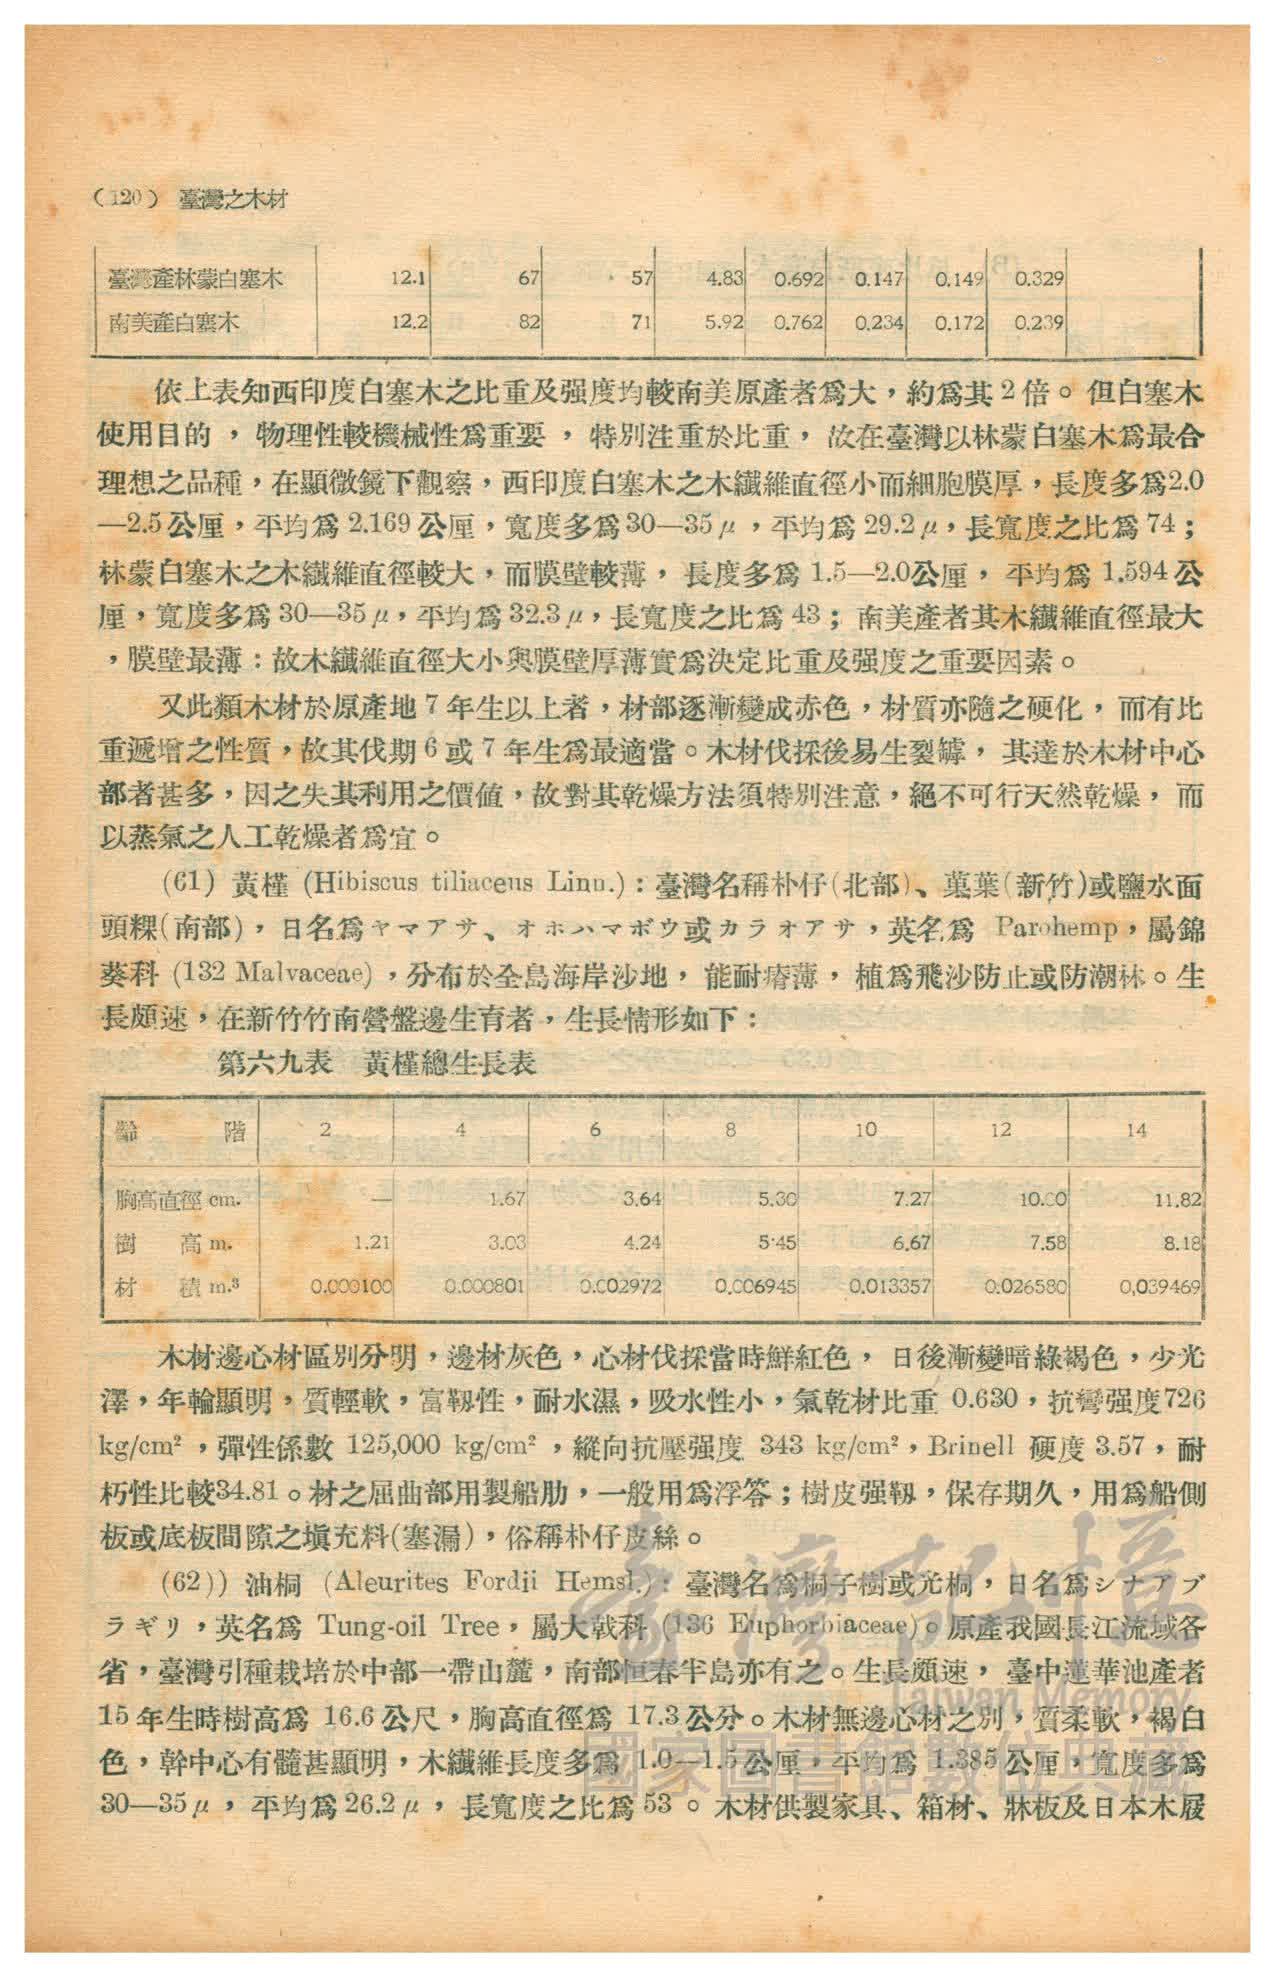 （120） 臺灣之木材
臺灣產林蒙白塞木 12.1 67 57 4.83 0.692 0.147 0.149 0.329
南美產白塞木 12.2 82 71 5.92 0.762 0.234 0.172 0.239
依上表知西印度白塞木之比重及强度均較南美原產者爲大，約爲其2倍。但白塞木
使用目的，物理性較機械性爲重要，特別注重於比重，故在臺灣以林蒙白塞木爲最合
理想之品種，在顯微鏡下觀察，西印度白塞木之木纖維直徑小而細胞膜厚，長度多爲2.0
—2.5公厘，平均爲2.169公厘，寬度多爲30—35μ，平均爲29.2μ，長寬度之比爲74；
林蒙白塞木之木纖維直徑較大，而膜壁較薄，長度多爲1.5—2.0公厘，平均爲1.594公
厘，寬度多爲30—35μ，平均爲32.3μ，長寬度之比爲43；南美產者其木纖維直徑最大
，膜壁最薄：故木纖維直徑大小與膜壁厚薄實爲決定比重及强度之重要因素。
又此類木材於原產地7年生以上者，材部逐漸變成赤色，材質亦隨之硬化，而有比
重遞增之性質，故其伐期6或7年生爲最適當。木材伐採後易生裂罅，其達於木材中心
部者甚多，因之失其利用之價値，故對其乾燥方法須特別注意，絕不可行天然乾燥，而
以蒸氣之人工乾燥者爲宜。
(61) 黃槿 (Hibiscus tiliaceus Linn.)：臺灣名稱朴仔(北部)、菓葉(新竹)或鹽水面
頭粿(南部)，日名爲ヤマアサ、オホハマボウ或カラオアサ，英名爲 Parohemp，屬錦
葵科 (132 Malvaceae)，分布於全島海岸沙地，能耐瘠薄，植爲飛沙防止或防潮林。生
長頗速，在新竹竹南營盤邊生育者，生長情形如下：
第六九表 黃槿總生長表
齡階 2 4 6 8 10 12 14
胸高直徑 cm. — 1.67 3.64 5.30 7.27 10.00 11.82
樹高 m. 1.21 3.03 4.24 5·45 6.67 7.58 8.18
材積 m.³ 0.000100 0.000801 0.002972 0.006945 0.013357 0.026580 0,039469
木材邊心材區別分明，邊材灰色，心材伐採當時鮮紅色，日後漸變暗綠褐色，少光
澤，年輪顯明，質輕軟，富韌性，耐水濕，吸水性小，氣乾材比重 0.630，抗彎强度726
kg/cm²，彈性係數 125,000 kg/cm²，縱向抗壓强度 343 kg/cm²，Brinell 硬度 3.57，耐
朽性比較34.81。材之屈曲部用製船肋，一般用爲浮笭；樹皮强韌，保存期久，用爲船側
板或底板間隙之塡充料(塞漏)，俗稱朴仔皮絲。
(62)) 油桐 (Aleurites Fordii Hemsl.)：臺灣名爲桐子樹或光桐，日名爲シナアブ
ラギリ，英名爲 Tung-oil Tree，屬大戟科 (136 Euphorbiaceae)。原產我國長江流域各
省，臺灣引種栽培於中部一帶山麓，南部恒春半島亦有之。生長頗速，臺中蓮華池產者
15年生時樹高爲 16.6公尺，胸高直徑爲 17.3公分。木材無邊心材之別，質柔軟，褐白
色，幹中心有髓甚顯明，木纖維長度多爲 1.0—1.5公厘，平均爲 1.385公厘，寬度多爲
30—35μ，平均爲26.2μ，長寬度之比爲53。木材供製家具、箱材、牀板及日本木屐
臺灣記憶
Taiwan Memory
國家圖書館數位典藏